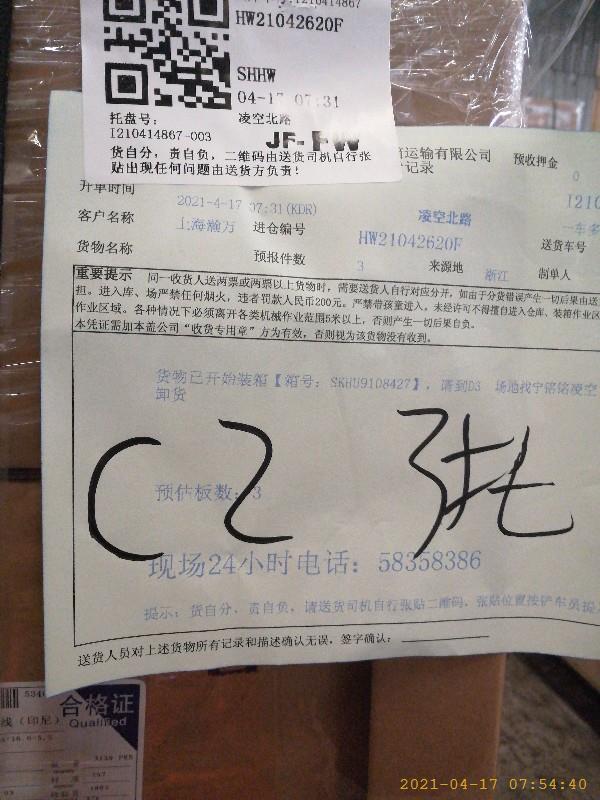 HW21042620F
SHHW
04-17 07:31
托盘号:
凌空北路
I210414867-003
JF-PW
货自分，责自负，二维码由送货司机自行张
贴出现任何问题由送货方负责！
运输有限公司
预收押金
0
记录
开单时间
2021-4-17 07:31(KDR)
凌空北路
I210
客户名称
上海瀚万
进仓编号
HW21042620F
一车多
送货车号
货物名称
预报件数
3
来源地
浙江
制单人
重要提示 同一收货人送两票或两票以上货物时，需要送货人自行对应分开，如由于分货错误产生一切后果由送
担。进入库、场严禁任何烟火，违者罚款人民币200元。严禁带孩童进入。未经许可不得擅自进入仓库、装箱作业区
作业区域。各种情况下必须离开各类机械作业范围5米以上，否则产生一切后果自负。
本凭证需加本盖公司“收货专用章”方为有效，否则视为该货物没有收到。
货物已开始装箱【箱号：SKHU9108427】，请到D3 场地找宁铭铭凌空
卸货
C2 3托
预估板数：3
现场24小时电话：58358386
提示：货自分、责自负，请送货司机自行张贴二维码，张贴位置按铲车员提
送货人员对上述货物所有记录和描述确认无误，签字确认：
合格证
Qualified
线（印尼）
2021-04-17 07:54:40